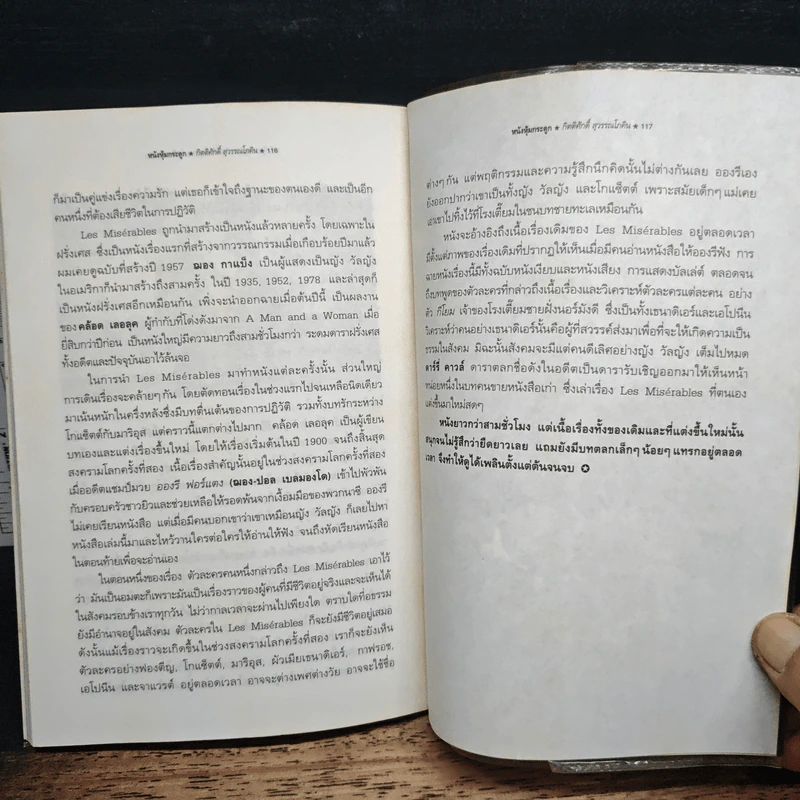 หนังหุ้มกระดูก ★ กิตติศักดิ์ สุวรรณโภคิน ★ 116
ก็มาเป็นคู่แข่งเรื่องความรัก แต่เธอก็เข้าใจถึงฐานะของตนเองดี และเป็นอีก
คนหนึ่งที่ต้องเสียชีวิตในการปฏิวัติ
Les Misérables ถูกนำมาสร้างเป็นหนังแล้วหลายครั้ง โดยเฉพาะใน
ฝรั่งเศส ซึ่งเป็นหนังเรื่องแรกที่สร้างจากวรรณกรรมเมื่อเกือบร้อยปีมาแล้ว
ผมเคยดูฉบับที่สร้างปี 1957 ฌอง กาแบ็ง เป็นผู้แสดงเป็นญัง วัลญัง
ในอเมริกาก็นำมาสร้างถึงสามครั้ง ในปี 1935, 1952, 1978 และล่าสุดก็
เป็นหนังฝรั่งเศสอีกเหมือนกัน เพิ่งจะนำออกฉายเมื่อต้นปีนี้ เป็นผลงาน
ของ คล็อด เลอลุค ผู้กำกับที่โด่งดังมาจาก A Man and a Woman เมื่อ
ยี่สิบกว่าปีก่อน เป็นหนังใหญ่มีความยาวถึงสามชั่วโมงกว่า ระดมดาราฝรั่งเศส
ทั้งอดีตและปัจจุบันเอาไว้ล้นจอ
ในการนำ Les Misérables มาทำหนังแต่ละครั้งนั้น ส่วนใหญ่
การเดินเรื่องจะคล้ายๆ กัน โดยตัดทอนเรื่องในช่วงแรกไปจนเหลือนิดเดียว
มาเน้นหนักในครึ่งหลังซึ่งมีบทตื่นเต้นของการปฏิวัติ รวมทั้งบทรักระหว่าง
โกแซ็ตต์กับมาริอุส แต่คราวนี้แตกต่างไปมาก คล็อด เลอลุค เป็นผู้เขียน
บทเองและแต่งเรื่องขึ้นใหม่ โดยให้เรื่องเริ่มต้นในปี 1900 จนถึงสิ้นสุด
สงครามโลกครั้งที่สอง เนื้อเรื่องสำคัญนั้นอยู่ในช่วงสงครามโลกครั้งที่สอง
เมื่ออดีตแชมป์มวย อองรี ฟอร์แตง (ฌอง-ปอล เบลมองโด) เข้าไปพัวพัน
กับครอบครัวชาวยิวและช่วยเหลือให้รอดพ้นจากเงื้อมมือของพวกนาซี อองรี
ไม่เคยเรียนหนังสือ แต่เมื่อมีคนบอกเขาว่าเขาเหมือนญัง วัลญัง ก็เลยไปหา
หนังสือเล่มนี้มาและไหว้วานใครต่อใครให้อ่านให้ฟัง จนถึงหัดเรียนหนังสือ
ในตอนท้ายเพื่อจะอ่านเอง
ในตอนหนึ่งของเรื่อง ตัวละครคนหนึ่งกล่าวถึง Les Misérables เอาไว้
ว่า มันเป็นอมตะก็เพราะมันเป็นเรื่องราวของผู้คนที่มีชีวิตอยู่จริงและจะเห็นได้
ในสังคมรอบข้างเราทุกวัน ไม่ว่ากาลเวลาจะผ่านไปเพียงใด ตราบใดที่อธรรม
ยังมีอำนาจอยู่ในสังคม ตัวละครใน Les Misérables ก็จะยังมีชีวิตอยู่เสมอ
ดังนั้นแม้เรื่องราวจะเกิดขึ้นในช่วงสงครามโลกครั้งที่สอง เราก็จะยังเห็น
ตัวละครอย่างฟองตีญ, โกแซ็ตต์, มาริอุส, ผัวเมียเธนาดิเอร์, กาฟรอช,
เอโปนีน และจาแวรต์ อยู่ตลอดเวลา อาจจะต่างเพศต่างวัย อาจจะใช้ชื่อ
หนังหุ้มกระดูก ★ กิตติศักดิ์ สุวรรณโภคิน ★ 117
ต่างๆ กัน แต่พฤติกรรมและความรู้สึกนึกคิดนั้นไม่ต่างกันเลย อองรีเอง
ยังออกปากว่าเขาเป็นทั้งญัง วัลญัง และโกแซ็ตต์ เพราะสมัยเด็กๆ แม่เคย
เอาเขาไปทิ้งไว้ที่โรงเตี๊ยมในชนบทชายทะเลเหมือนกัน
หนังจะอ้างอิงถึงเนื้อเรื่องเดิมของ Les Misérables อยู่ตลอดเวลา
มีตั้งแต่ภาพของเรื่องเดิมที่ปรากฏให้เห็นเมื่อมีคนอ่านหนังสือให้อองรีฟัง การ
ฉายหนังเรื่องนี้มีทั้งฉบับหนังเงียบและหนังเสียง การแสดงบัลเล่ต์ ตลอดจน
ถึงบทพูดของตัวละครที่กล่าวถึงเนื้อเรื่องและวิเคราะห์ตัวละครแต่ละคน อย่าง
ตัว กีโยม เจ้าของโรงเตี๊ยมชายฝั่งนอร์มังดี ซึ่งเป็นทั้งเธนาดิเอร์และเอโปนีน
วิเคราะห์ว่าคนอย่างเธนาดิเอร์นั้นคือผู้ที่สวรรค์ส่งมาเพื่อที่จะให้เกิดความเป็น
ธรรมในสังคม มิฉะนั้นสังคมจะมีแต่คนดีเลิศอย่างญัง วัลญัง เต็มไปหมด
ดาร์รี่ คาวล์ ดาราตลกชื่อดังในอดีตเป็นดารารับเชิญออกมาให้เห็นหน้า
หน่อยหนึ่งในบทคนขายหนังสือเก่า ซึ่งเล่าเรื่อง Les Misérables ที่ตนเอง
แต่งขึ้นมาใหม่สดๆ
หนังยาวกว่าสามชั่วโมง แต่เนื้อเรื่องทั้งของเดิมและที่แต่งขึ้นใหม่นั้น
สนุกจนไม่รู้สึกว่ายืดยาวเลย แถมยังมีบทตลกเล็กๆ น้อยๆ แทรกอยู่ตลอด
เวลา จึงทำให้ดูได้เพลินตั้งแต่ต้นจนจบ ✪